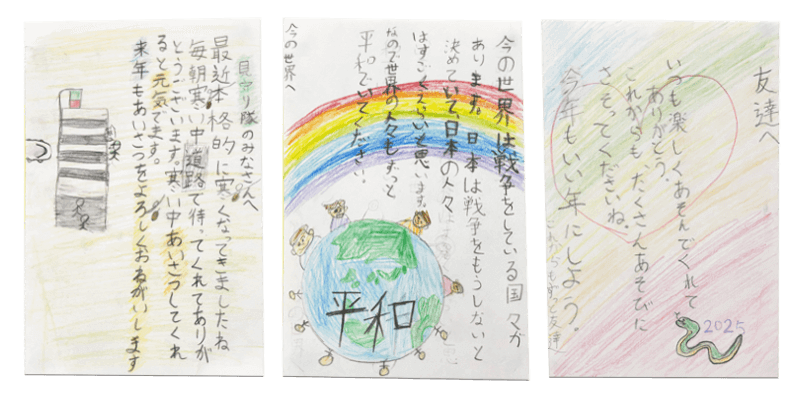 見守り隊のみなさんへ
最近本格的に寒くなってきましたね
毎朝寒い中道路で待ってくれてありが
とうございます。寒い中あいさつしてくれ
ると元気でます。
来年もあいさつをよろしくおねがいします
今の世界は戦争をしている国々が
あります。日本は戦争をもうしないと
決めていて、日本の人々
はすごくえらいと思います。
なので世界の人々もずっと
平和でいてください。
今の世界へ
平和
友達へ
いつも楽しくあそんでくれて
ありがとう。
これからも、たくさんあそびに
さそってくださいね。
今年もいい年にしよう。
これからもずっと友達
2025